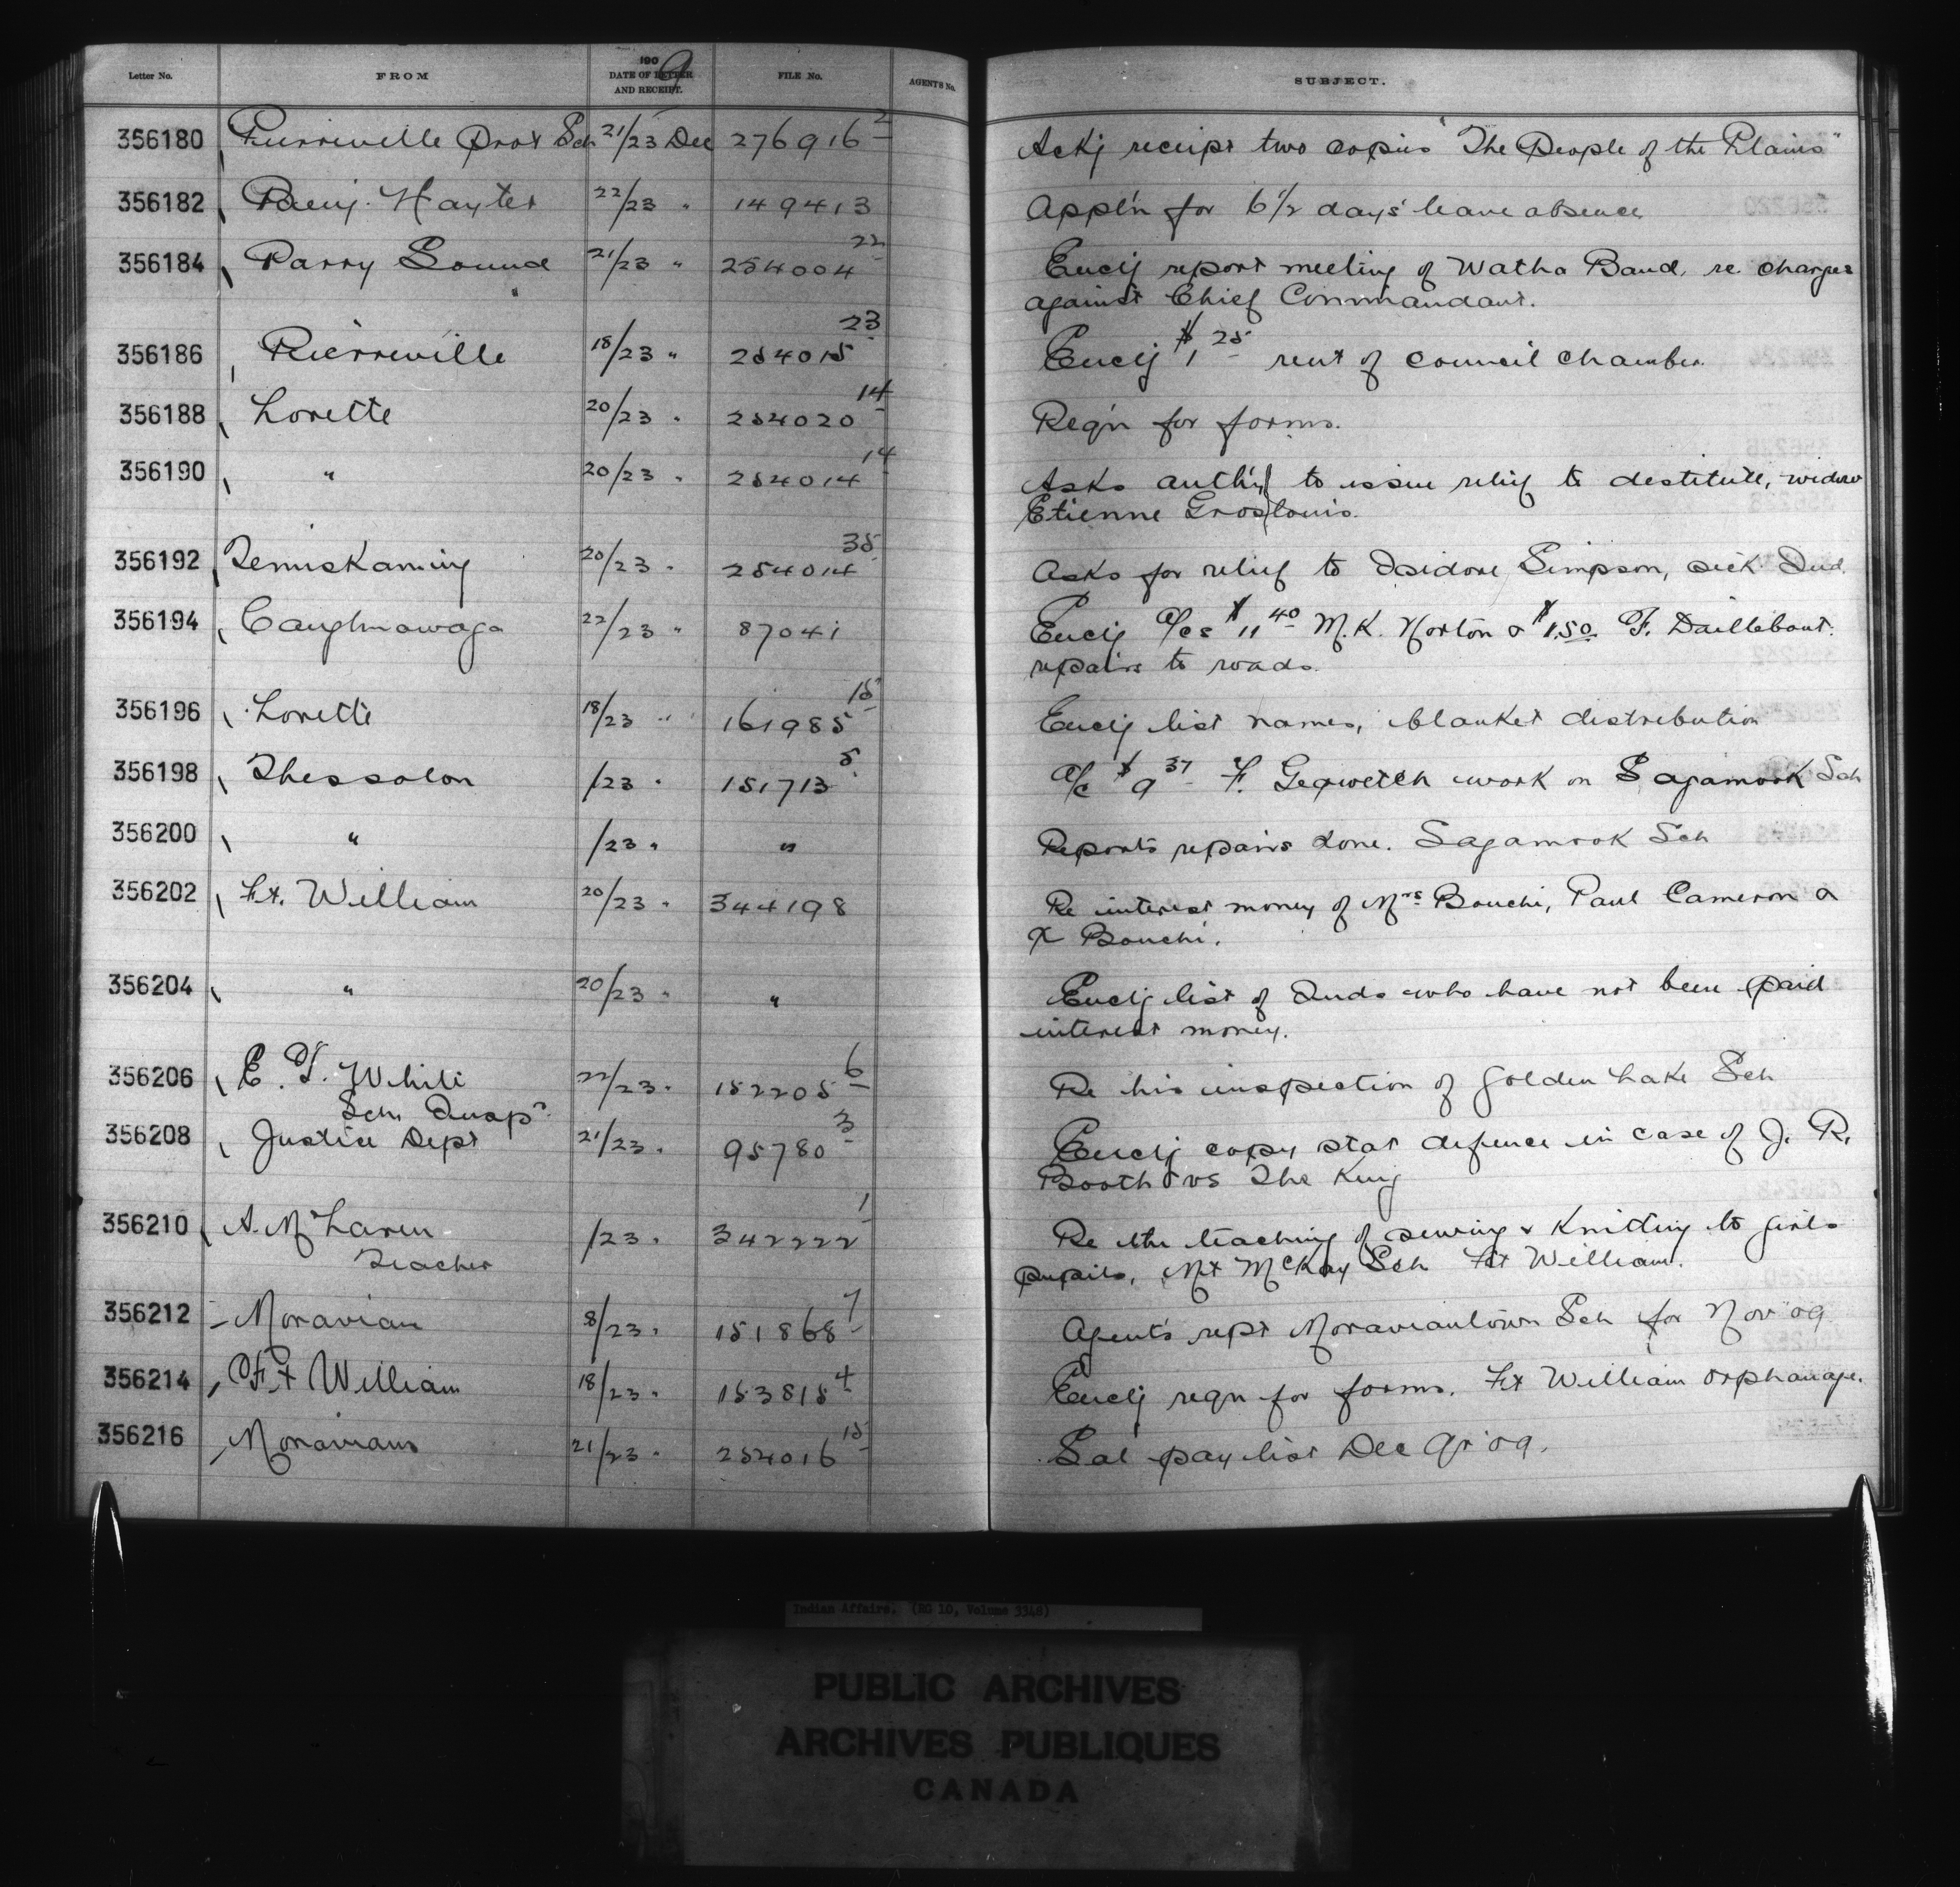 Letter No. FROM 1909 DATE OF LETTER AND RECEIPT. FILE No. AGENTS No. SUBJECT.
356180 Pierreville Prot Sch 21/23 Dec 276916 2 Ackg receipt two copies "The People of the Plains"
356182 Benj. Hayter 22/23 " 149413 Appl'n for 6 1/2 days' leave absence
356184 Parry Sound 21/23 " 254004 22 Enclg report meeting of Watha Band, re. charges
against Chief Commandant.
356186 Pierreville 18/23 " 254015 23 Enclg $1 25 rent of council chamber.
356188 Lorette 20/23 " 254020 14 Reqn for forms.
356190 " 20/23 " 254014 14 Asks auth'y to issue relief to destitute, widow
Etienne Groslouis.
356192 Temiskaming 20/23 " 254014 35 Asks for relief to Isidore Simpson, sick Ind.
356194 Caughnawaga 22/23 " 87041 Enclg a/cs $11 40 M.K. Norton & $1.50 F. Daillebout.
repairs to roads.
356196 Lorette 18/23 " 161985 15 Enclg list names, blanket distribution
356198 Thessalon /23 " 151713 5 a/c $9 37 F. Gegwetch work on Sagamook Sch
356200 " /23 " " Reports repairs done. Sagamook Sch
356202 Ft. William 20/23 " 344198 Re interest money of Mrs Bouchi, Paul Cameron &
X Bouchi.
356204 " 20/23 " " Enclg list of Inds who have not been paid
interest money.
356206 E. T. White 22/23 " 152205 6 Re his inspection of Golden Lake Sch
Sch. Insp r
356208 Justice Dept 21/23 " 95780 3 Enclg copy stat defence in case of J. R.
Booth vs The King
356210 A. McLaren /23 " 342222 1 Re the teaching of sewing & knitting to girls
Teacher pupils, Mt McKay Sch Ft William.
356212 Moravian 8/23 " 151868 7 Agent's rept Moraviantown Sch for Nov '09
356214 Ft William 18/23 " 153815 4 Enclg reqn for forms. Ft William Orphanage.
356216 Moravians 21/23 " 254016 15 Sal pay list Dec Qr '09.
Indian Affairs. (RG 10, Volume 3348)
PUBLIC ARCHIVES
ARCHIVES PUBLIQUES
CANADA